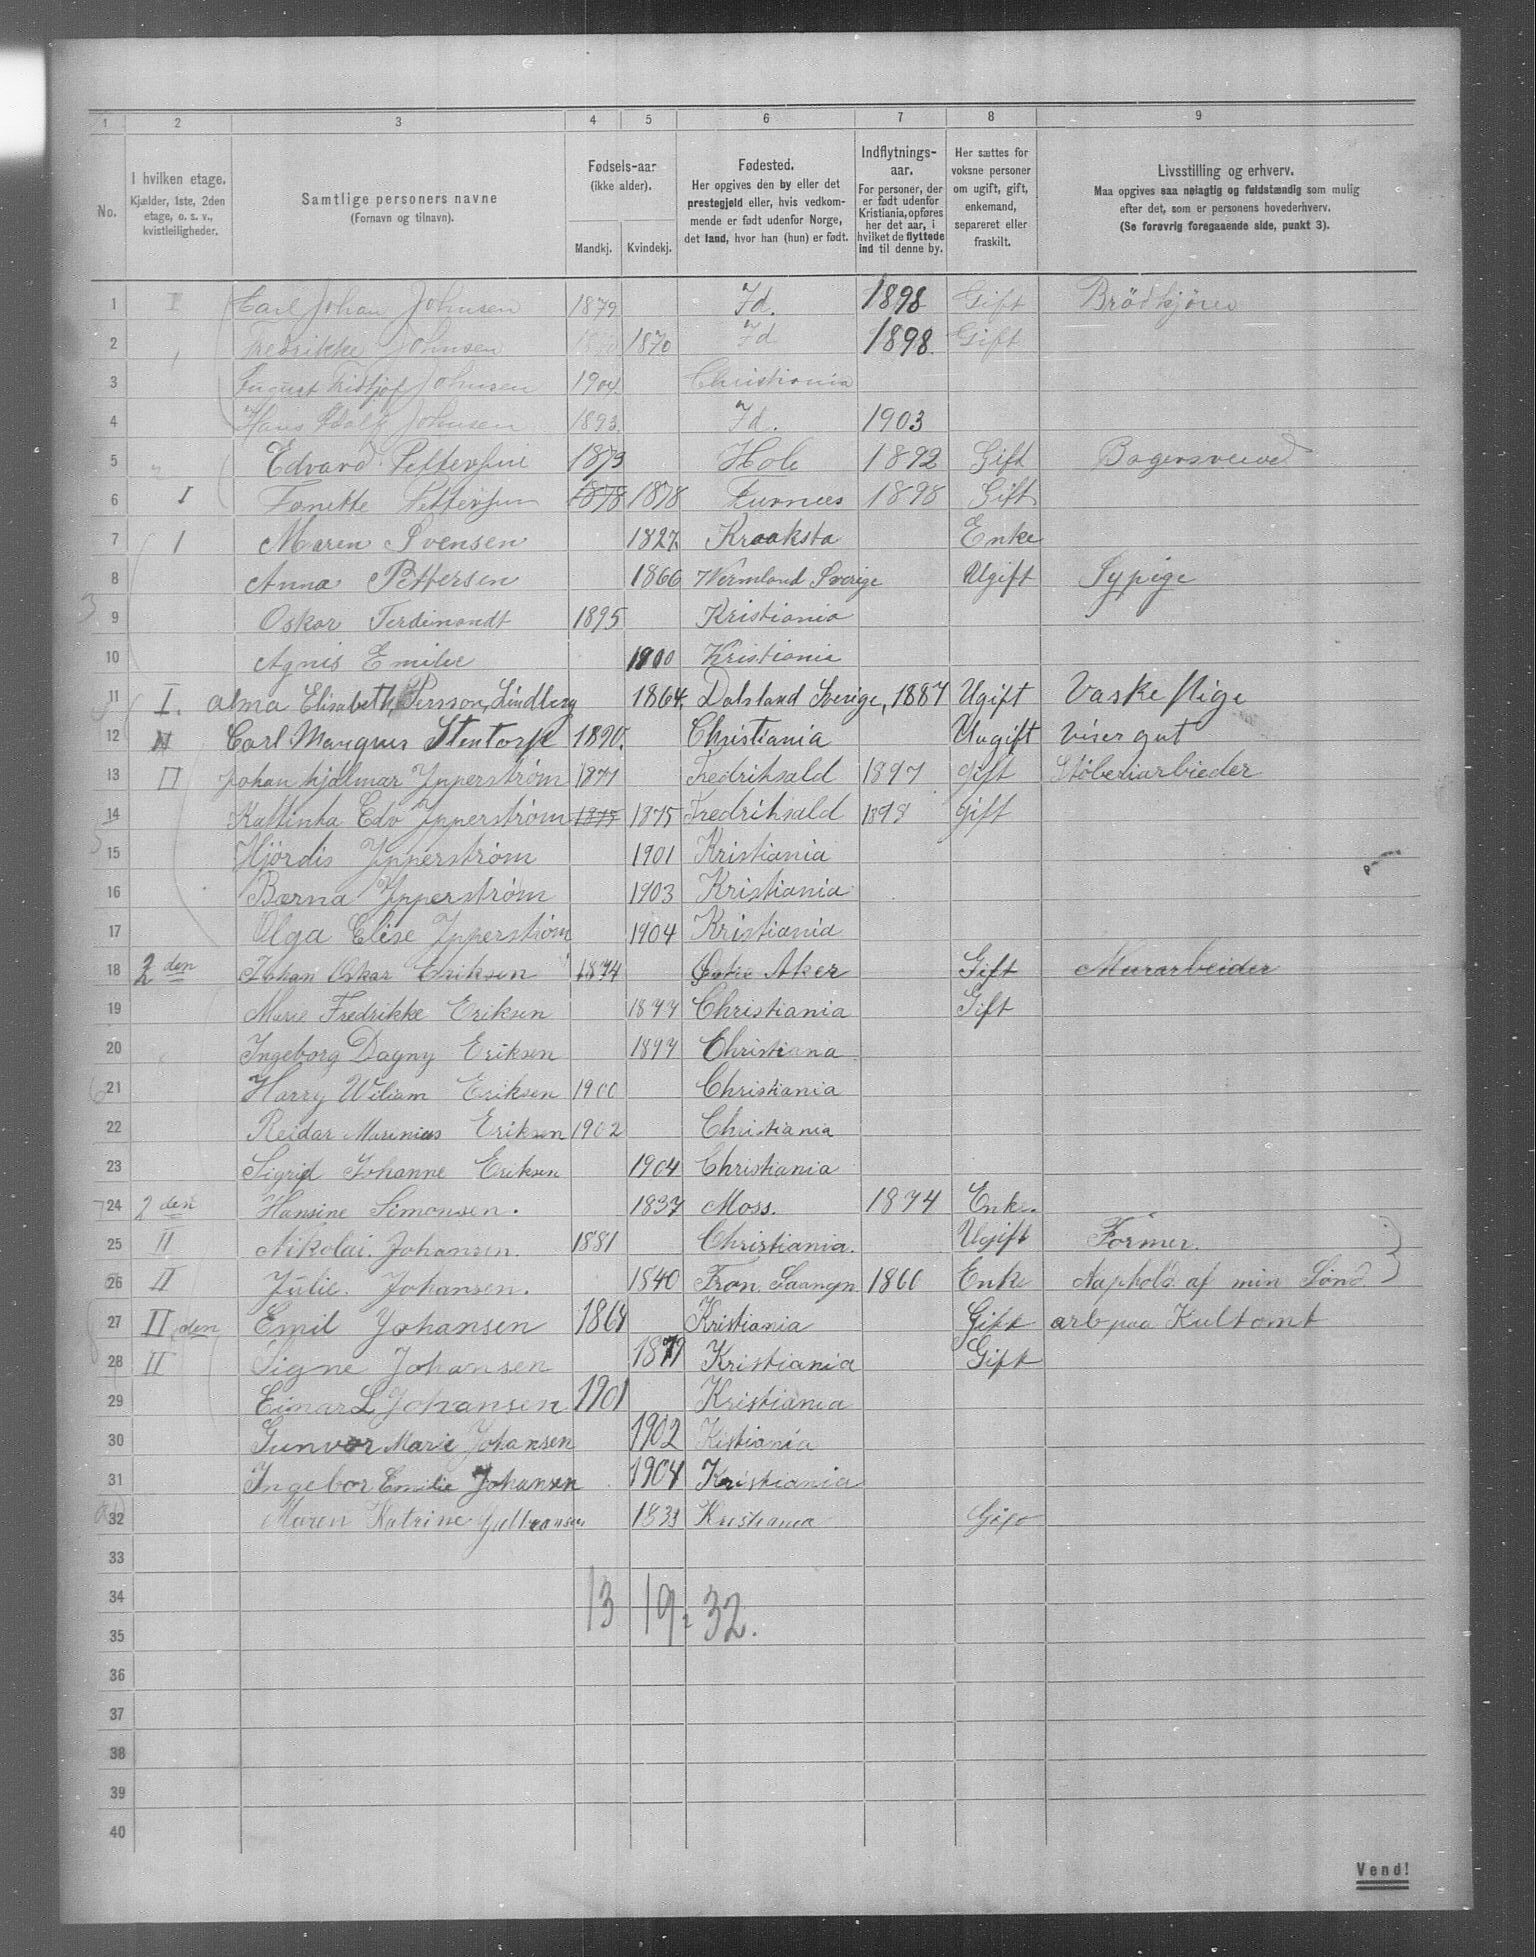 1 2 3 4 5 6 7 8 9
No.
I hvilken etage.
Kjælder, 1ste, 2den
etage, o. s. v.,
kvistleiligheder.
Samtlige personers navne
(Fornavn og tilnavn).
Fødsels-aar
(ikke alder).
Mandkj. Kvindekj.
Fødested.
Her opgives den by eller det
prestegjeld eller, hvis vedkom-
mende er født udenfor Norge,
det land, hvor han (hun) er født.
Indflytnings-
aar.
For personer, der
er født udenfor
Kristiania, opføres
her det aar, i
hvilket de flyttede
ind til denne by.
Her sættes for
voksne personer
om ugift, gift,
enkemand,
separeret eller
fraskilt.
Livsstilling og erhverv.
Maa opgives saa nøiagtig og fuldstændig som mulig
efter det, som er personens hovederhverv.
(Se forøvrig foregaaende side, punkt 3).
1 I Carl Johan Johnsen 1879 Id. 1898 Gift Brödkjörer
2 Fredrikke Johnsen 1870 Id 1898 Gift
3 August Fridtjof Johnsen 1904 Christiania
4 Hans Adolf Johnsen 1893. Id. 1903
5 Edvard Pettersen 1873 Hole 1892 Gift Bagersvend
6 I Fanette Pettersen 1878 1878 Furnees 1898 Gift
7 I Maren Svensen 1827 Kraaksta Enke
8 Anna Pettersen 1866 Vermland Sverige Ugift Sypige
9 Oskar Ferdinandt 1895 Kristiania
10 Agnis Emilie 1900 Kristiania
11 I. Alma Elisabeth Persson, Lindberg 1864. Dalsland Sverige, 1887 Ugift Vaskepige
12 II Carl Mangnus Stentorp 1890. Christiania Uugift Visergut
13 II Johan Hjalmar Ypperström 1871 Fredrikshald 1897 gift Stöberiarbieder
14 Kattinka Edv Ypperström 1875 1875 Fredrikshald 1898 gift
15 Hjördis Ypperström 1901 Kristiania
16 Berna Ypperström 1903 Kristiania
17 Olga Elise Ypperström 1904 Kristiania
18 2 den Johan Oskar Eriksen 1874 Østre Aker Gift Murarbeider
19 Marie Fredrikke Eriksen 1877 Christiania Gift
20 Ingeborg Dagny Eriksen 1897 Christiana
21 Harry Wiliam Eriksen 1900 Christiania
22 Reidar Marinius Eriksen 1902 Christiania
23 Sigrid Johanne Eriksen 1904 Christiania
24 2 den Hansine Simonsen. 1837 Moss. 1874 Enke.
25 II Nikolai. Johansen. 1881 Christiania. Ugift Former.
26 II Julie. Johansen. 1840 Fron 1860 Enke af min Sönd
27 II den Emil Johansen 1868 Kristiania Gift arb paa Kultomt
28 II Signe Johansen 1879 Kristiania Gift
29 Einar L Johansen 1901 Kristiania
30 Gunvor Marie Johansen 1902 Kistiania
31 Ingebor Emilie Johansen 1904 Kristiania
32 Maren Katrine 1833 Kristiania Gift
33
34 13 19 = 32.
35
36
37
38
39
40
Vend!